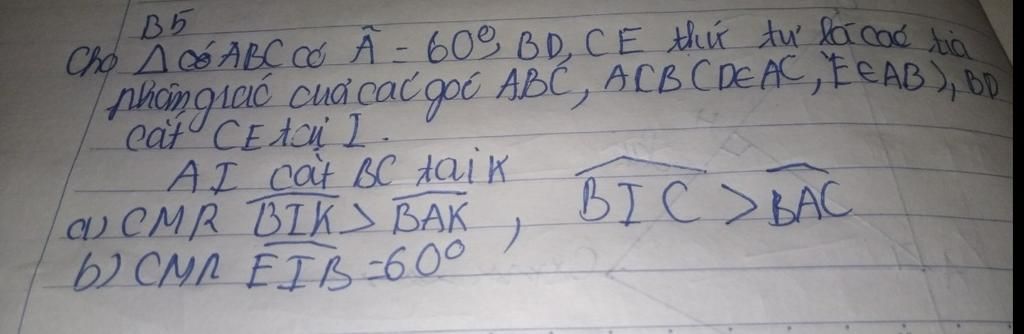 B5
Cho Δ có ABC có Â = 60⁰, BD, CE thứ tự là các tia
phân giác của các góc ABC, ACB (D∈AC, E∈AB), BD
cắt CE tại I.
AI cắt BC tại K
a) CMR \widehat{BIK} > \widehat{BAK}, \widehat{BIC} > \widehat{BAC}
b) CMR \widehat{EIB} = 60⁰